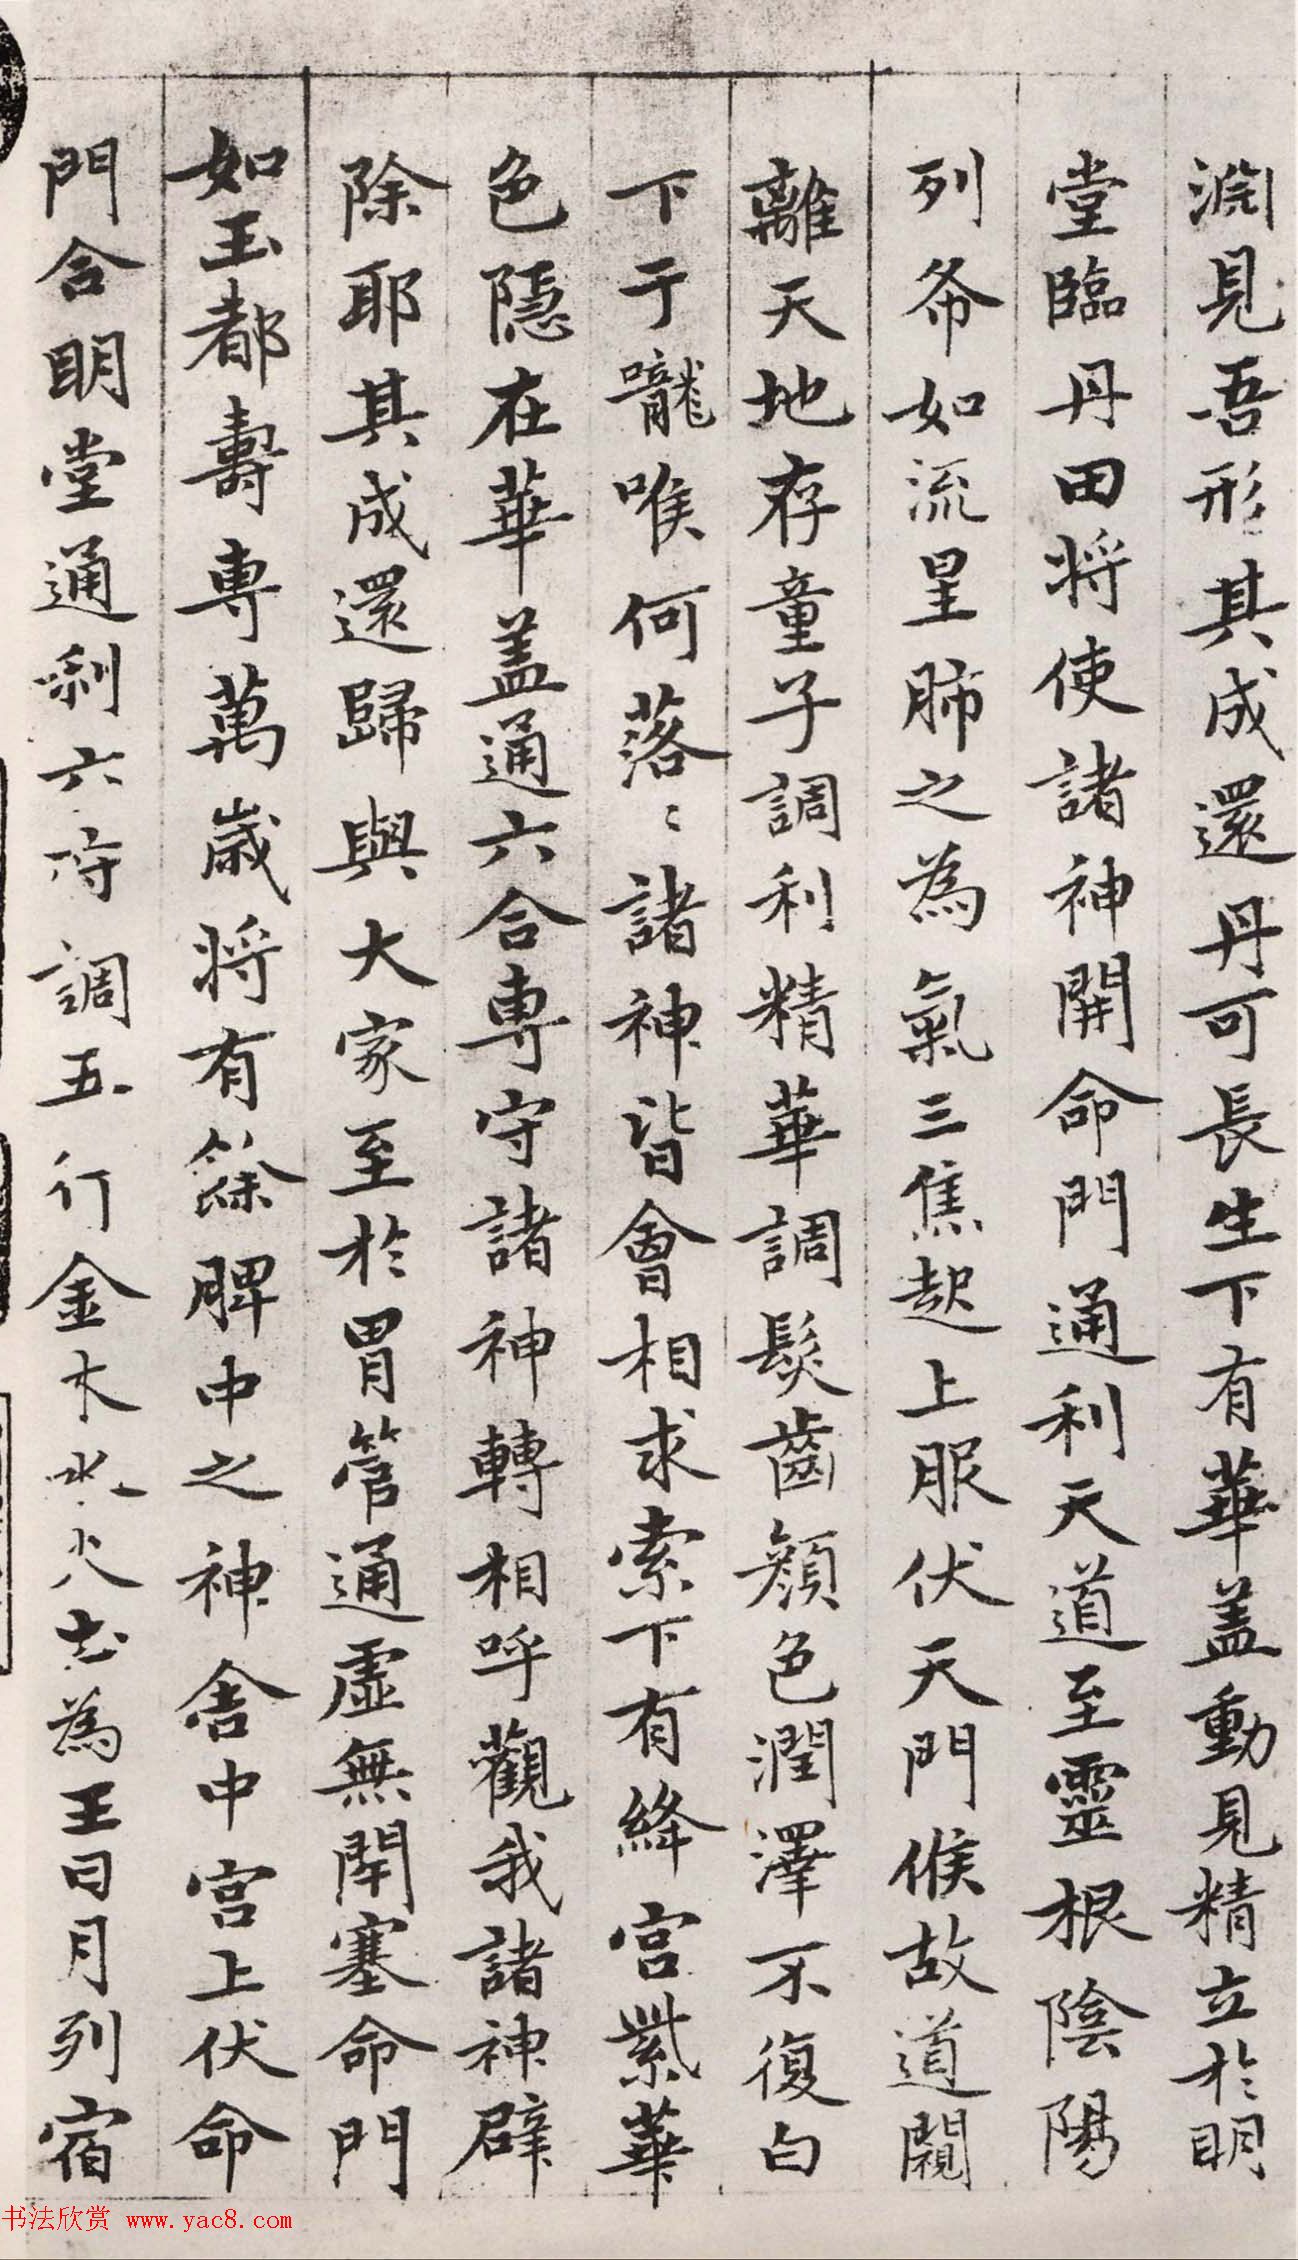 淵見吾形其成還丹可長生下有華盖動見精立於明
堂臨丹田将使諸神開命門通利天道至靈根陰陽
列布如流星肺之為氣三焦起上服伏天門候故道闚
離天地存童子調利精華調髮齒顏色潤澤不復白
下于嚨喉何落〻諸神皆會相求索下有絳宮紫華
色隱在華盖通六合專守諸神轉相呼觀我諸神辟
除耶其成還歸與大家至於胃管通虛無閇塞命門
如玉都壽専萬歲将有餘脾中之神舍中宮上伏命
門合明堂通利六府調五行金木水火土為王日月列宿
书法欣赏 www.yac8.com